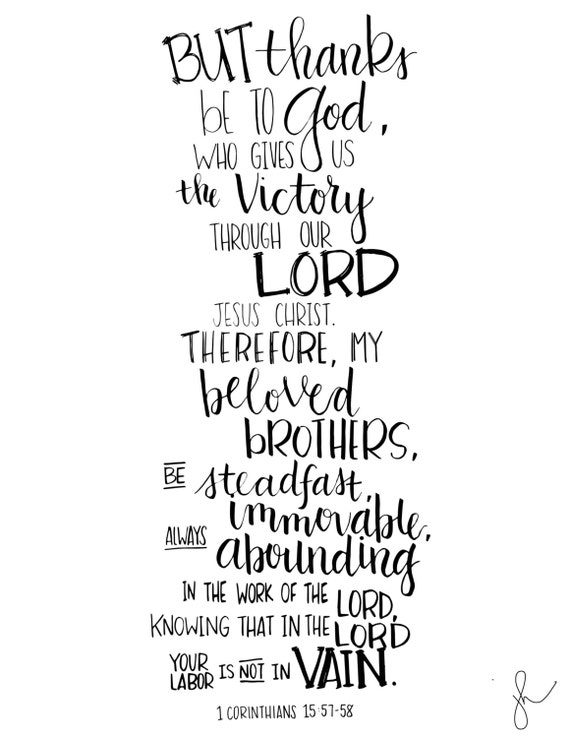 BUT thanks
bE TO God,
WHO GIVES US
the Victory
THROUGH OUR
LORD
JESUS CHRIST.
THEREFORE, MY
beloved
bROTHERS,
BE steadfast,
immovable,
ALWAYS abounding
IN THE WORK OF THE LORD,
KNOWING THAT IN THE LORD
YOUR LABOR IS NOT IN VAIN.
1 CORINTHIANS 15:57-58
jh